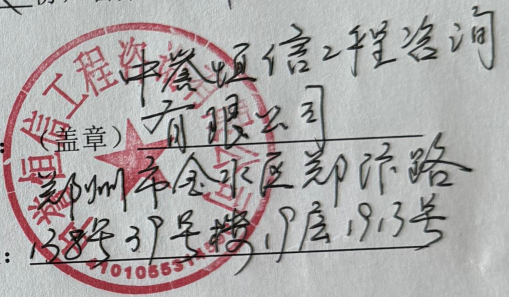 中誉恒信工程咨询
：（盖章）有限公司
郑州市金水区郑汴路
：138号39号楼19层1913号
誉恒信工程咨